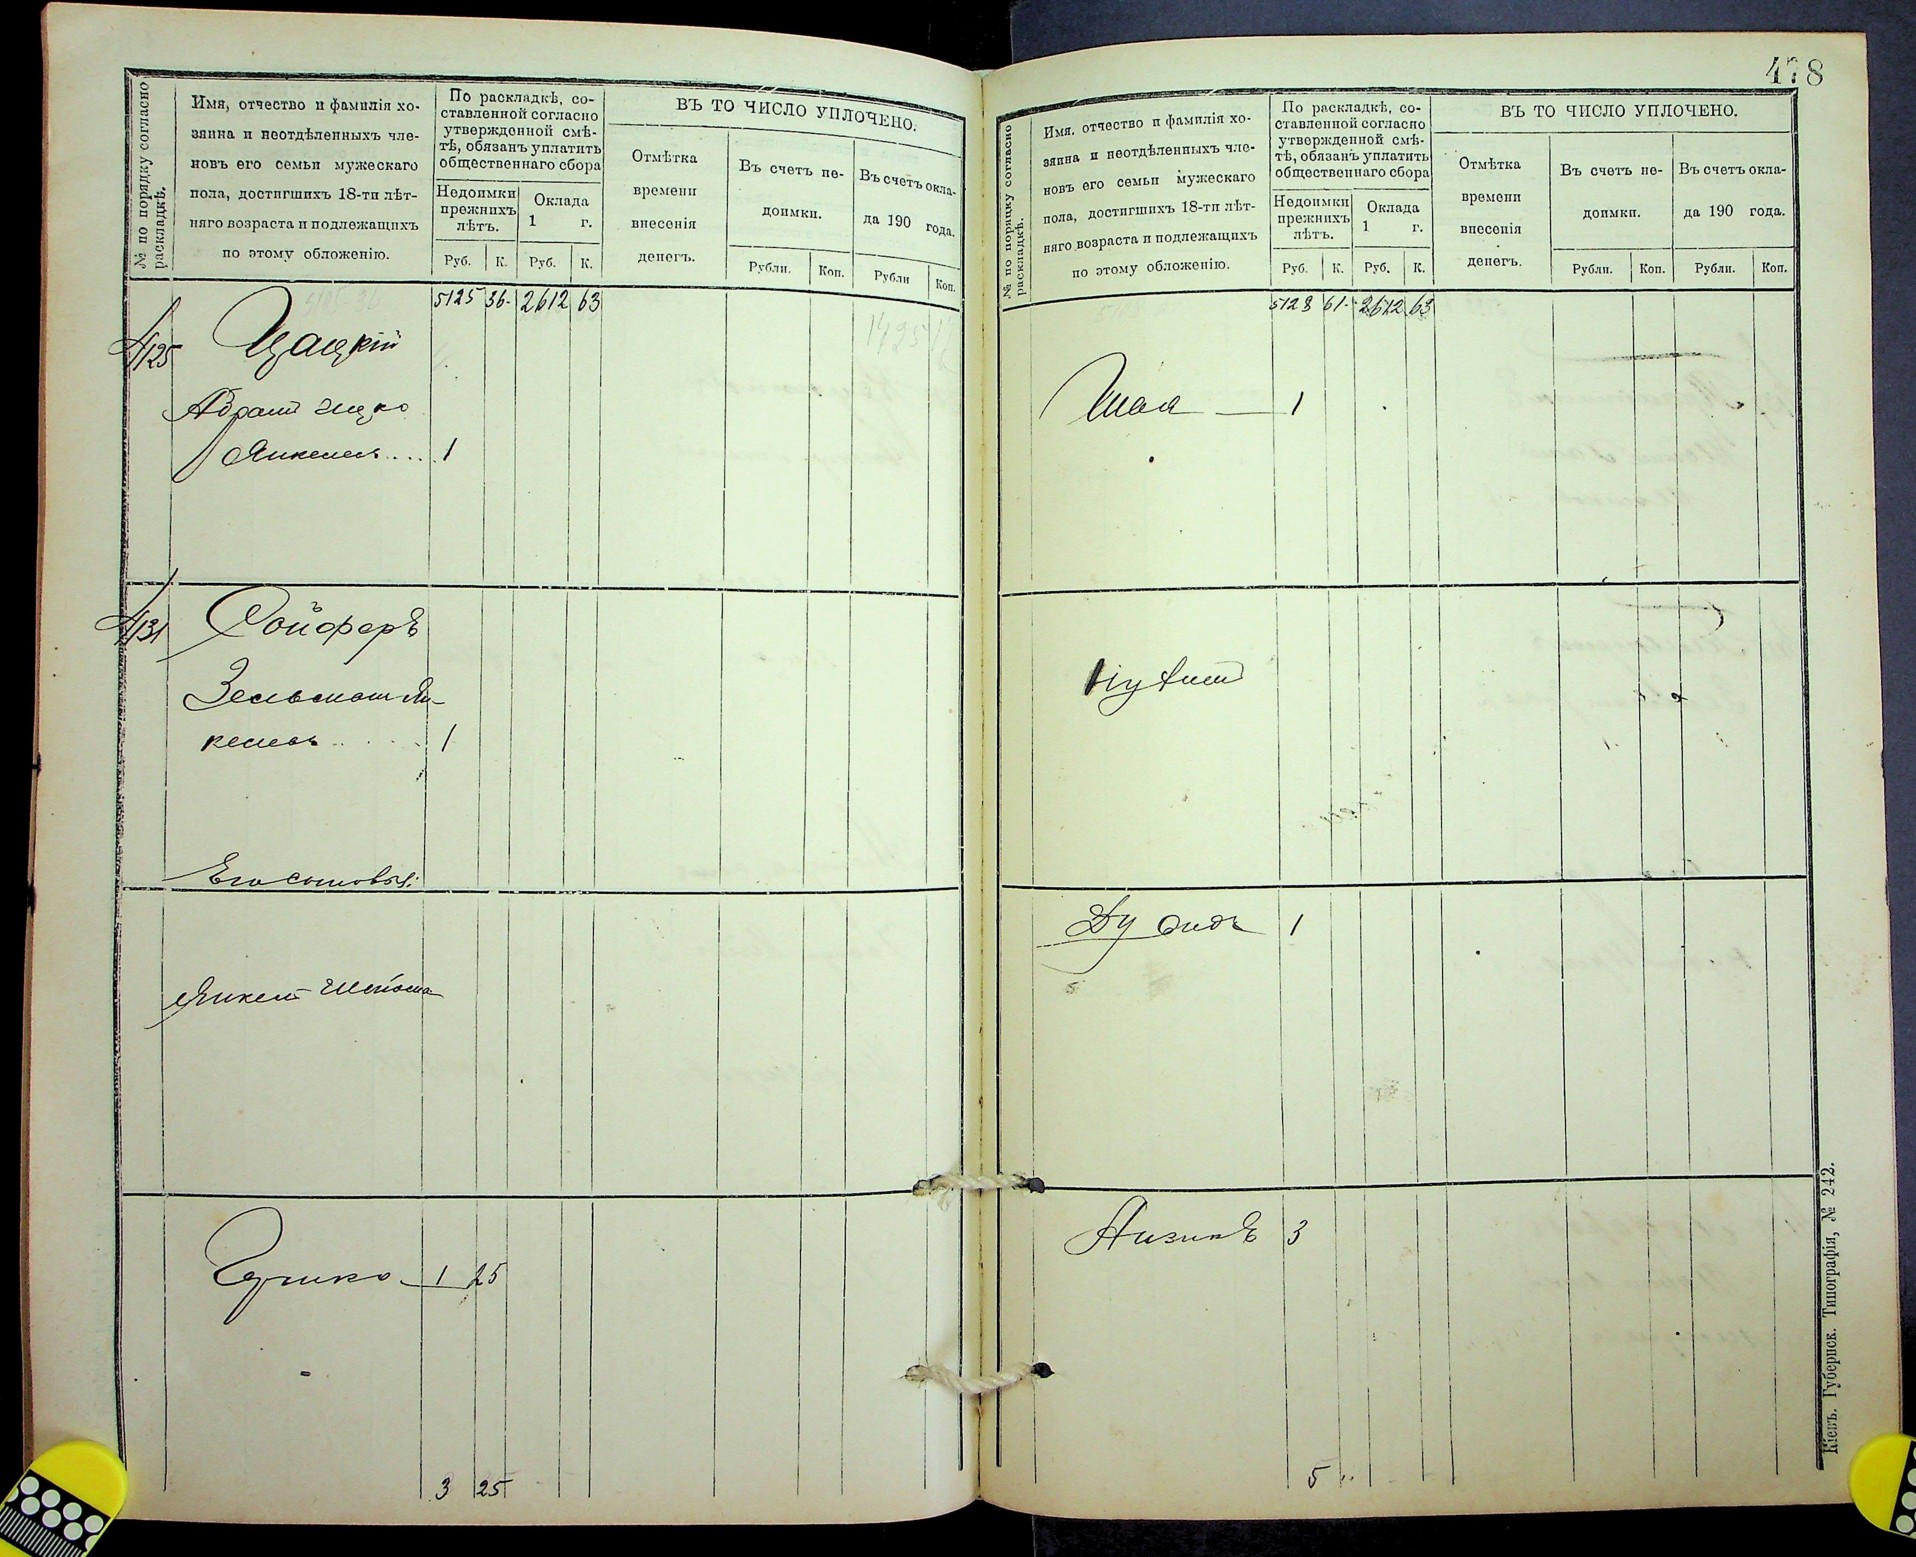 № по порядку согласно раскладкѣ.
Имя, отчество и фамилія хо-
зяина и неотдѣленныхъ чле-
новъ его семьи мужескаго
пола, достигшихъ 18-ти лѣт-
няго возраста и подлежащихъ
по этому обложенію.
По раскладкѣ, со-
ставленной согласно
утвержденной смѣ-
тѣ, обязанъ уплатить
общественнаго сбора
Недоимки
прежнихъ
лѣтъ.
Оклада
1 г.
Руб. К. Руб. К.
ВЪ ТО ЧИСЛО УПЛОЧЕНО.
Отмѣтка
времени
внесенія
денегъ.
Въ счетъ не-
доимки.
Въ счетъ окла-
да 190 года.
Рубли. Коп. Рубли Коп.
5125 36 2612 63
125 Цацкій
Абрамъ Ицко
Янкелевъ.... 1
131 Ройферъ
Зельманъ Ян-
келевъ 1
Его сыновья:
Янкель
1 25
3 25
478
№ по порядку согласно раскладкѣ.
Имя, отчество и фамилія хо-
зяина и неотдѣленныхъ чле-
новъ его семьи мужескаго
пола, достигшихъ 18-ти лѣт-
няго возраста и подлежащихъ
по этому обложенію.
По раскладкѣ, со-
ставленной согласно
утвержденной смѣ-
тѣ, обязанъ уплатить
общественнаго сбора
Недоимки
прежнихъ
лѣтъ.
Оклада
1 г.
Руб. К. Руб. К.
ВЪ ТО ЧИСЛО УПЛОЧЕНО.
Отмѣтка
времени
внесенія
денегъ.
Въ счетъ не-
доимки.
Въ счетъ окла-
да 190 года.
Рубли. Коп. Рубли. Коп.
5128 61 2612 63
Шая 1
1
Айзикъ 3
5
Кіевъ. Губернск. Типографія, № 242.